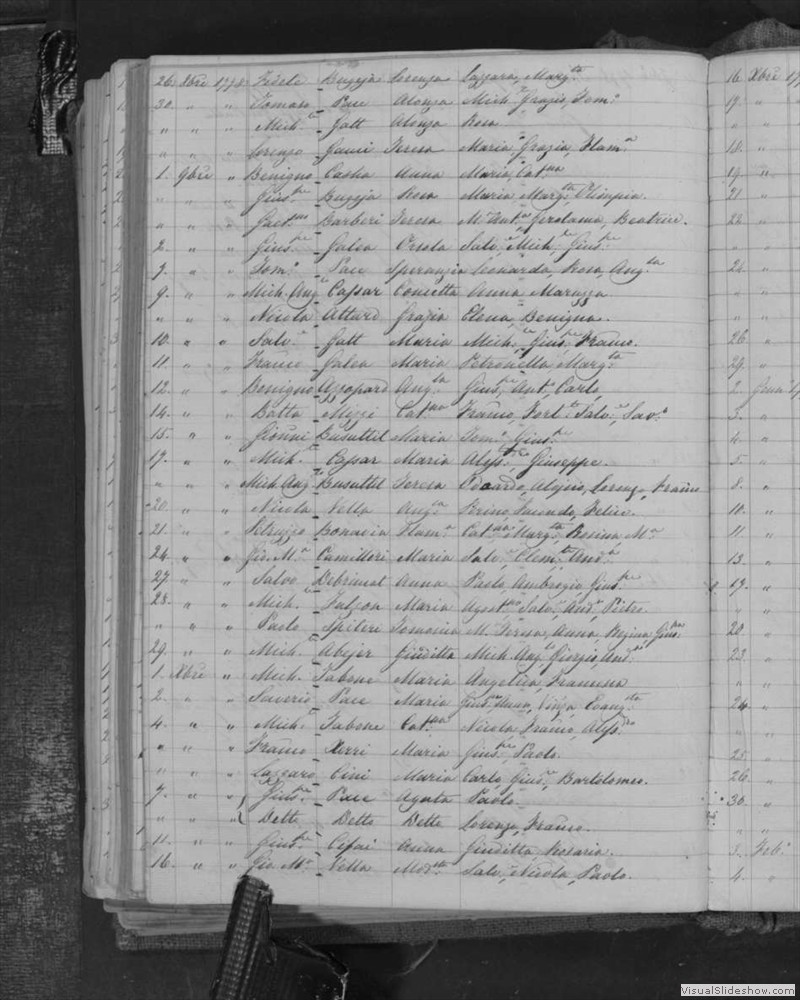 26. Xbre 1778. Fidele Bugeja Lorenza Lazzara, Marg.ta
30. " " Tomaso Pace Alonza Mich.le Grazio, Tom.o
" " " Mich.le Gatt Alonza Rosa
" " " Lorenzo Gauci Teresa Maria Grazia, Flam.a
1. 9bre " Benigno Casha Anna Maria, Cat.na
" " " Gius.pe Bugeja Rosa Maria Marg.ta Olimpia.
" " " Gaet.no Barberi Teresa M.a Ant.a Gerolama, Beatrice.
2. " " Gius.pe Galea Orsola Salv.e Mich.le Gius.pe
7. " " Tom.o Pace Speranzia Leonarda, Rosa, Ang.la
9. " " Mich. Ang.lo Cassar Concetta Anna Maruzza
" " " Nicola Attard Grazia Elena, Benigna.
10. " " Salv.e Gatt Maria Mich.le Gius.pe Franco.
11. " " Franco Galea Maria Petronella, Marg.ta
12. " " Benigno Azzopard Ang.la Gius.pe Ant.o Carlo
14. " " Batta Mizzi Cat.na Franco, Fort.o Salv.e, Sav.o
15. " " Gionni Busuttil Maria Tom.o Gius.pe
17. " " Mich.le Cassar Maria Aless.dro Giuseppe.
" " " Mich. Ang.lo Busuttil Teresa Edoardo, Aloisio, Lorenzo, Franco
20. " " Nicola Vella Ang.la Felice.
21. " " Petruzzo Bonavia Flam.a Cat.na Marg.ta Rosina M.a
24. " " Gio. M.a Camilleri Maria Salv.e Clem.te And.a
27. " " Salvo Debrincat Anna Paolo, Ambrogio, Gius.pe
28. " " Mich.le Falzon Maria Agost.no Salv.e And.a Pietro.
" " " Paolo Spiteri M.a Teresa, Anna, Regina
29. " " Mich.le Abejer Giuditta Mich. Ang.lo Giorgio, And.a
1. Xbre " Mich.le Tabone Maria Angelica, Francesca
2. " " Saverio Pace Maria Anna, Vinza Evang.sta
4. " " Mich.le Tabone Cat.na Nicola, Franco, Aless.dro
" " " Franco Xerri Maria Gius.pe Paolo
" " " Lazzaro Cini Maria Carlo, Gius.e, Bartolomeo.
7. " " Gius.e Pace Agata Paolo
" " " Detto Detto Detto Lorenzo, Franco.
11. " " Gius.pe Cefai Anna Giuditta, Rosaria.
16. " " Gio. M.a Vella Mod.ta Salv.e, Nicola, Paolo.
16. Xbre 17
17. "
" "
18. "
19. "
21 "
22. "
" "
24. "
" "
" "
26 "
29. "
2.
3. "
4. "
5. "
8. "
10. "
11. "
13. "
17. "
20 "
23. "
" "
24 "
" "
25 "
26. "
30. "
" "
3. Feb.o
4. "
VisualSlideshow.com